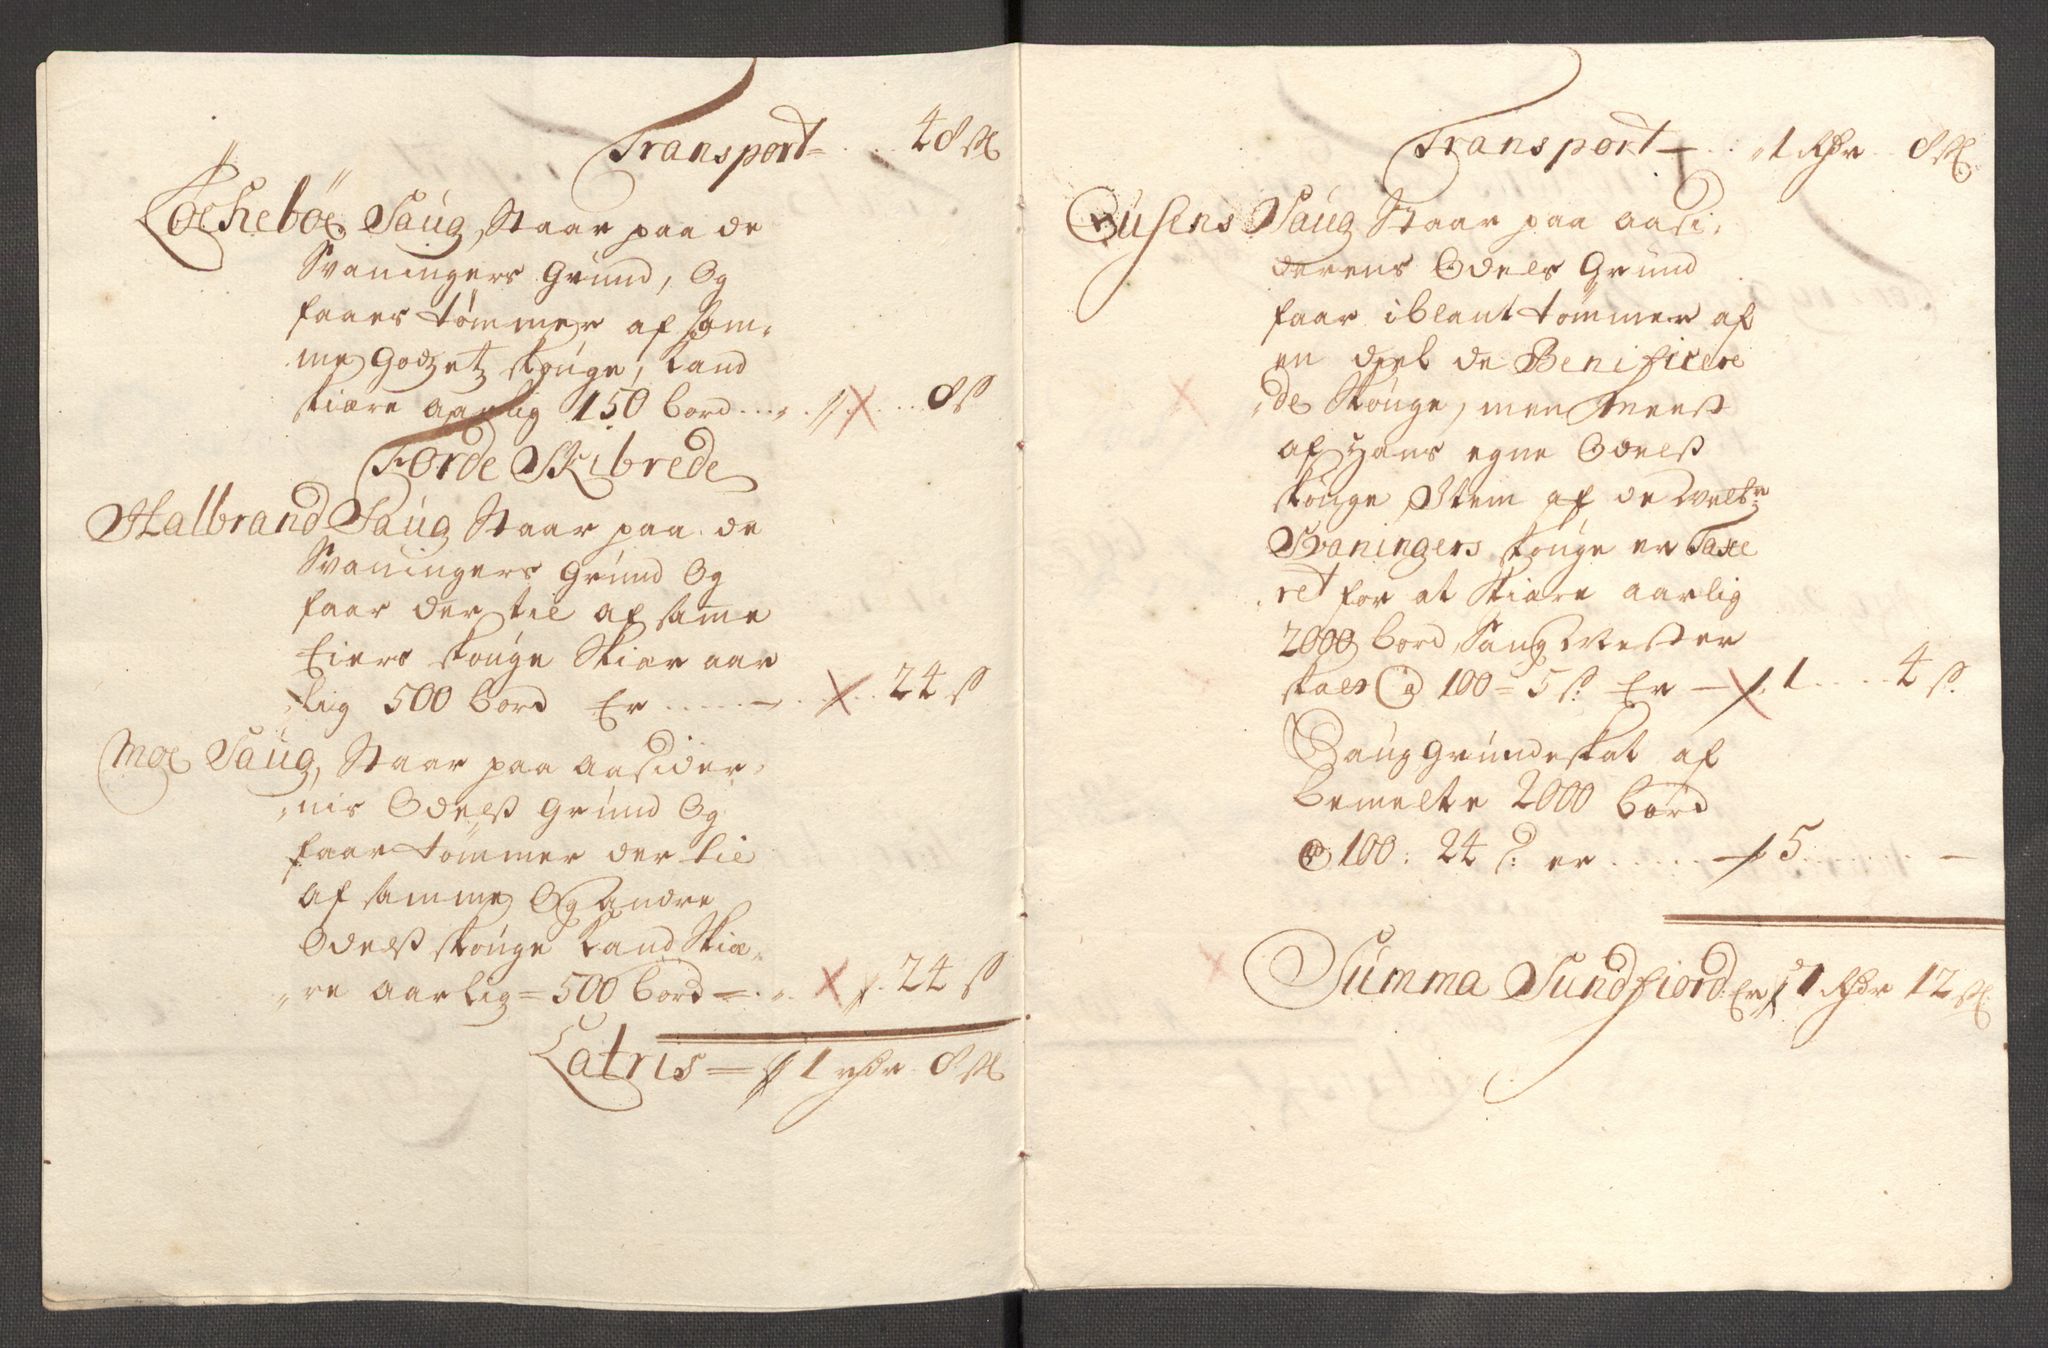 Transport . . . 48 ß
Løchebøe Saug, Staar paa de
Svaningers Grund, Og
faaer tømmer af sam-
me Godzet skouge, kand
skiære aarlig 150 bord . . . . . . . 8 ß
Førde Skibrede
Halbrand Saug Staar paa de
Svaningers Grund Og
faar der til af samme
Eiers skouge Skiær aar
lig 500 bord Er . . . . . 24 ß
Moe Saug, Staar paa Aasider-
nis Odelß Grund Og
faar tømmer der til
af samme Og andre
Odelß skouge kand Skiæ-
re aarlig = 500 bord = . . 24 ß
Latris = 1 rdr 8 ß
Transport . . 1 Rdr . 8 ß
Saug Staar paa Aasi-
derens Odels Grund
faar iblant tømmer af
en deel de Benificere
de Skouge, men meest
af Hans egne Odelß
skouge Item af de Velb:ne
Svaningers skouge er Taxe
ret for at Skiære aarlig
2000 bord, Saug Mester
skatt @ 100 = 5 ß Er – 1 . . . . 4 ß
Saug Grundeskat af
bemelte 2000 bord
@ 100 : 24 ß: er . . . . . 5 . . . . –
Summa Sundfiord: Er 71 Rdr 12 ß